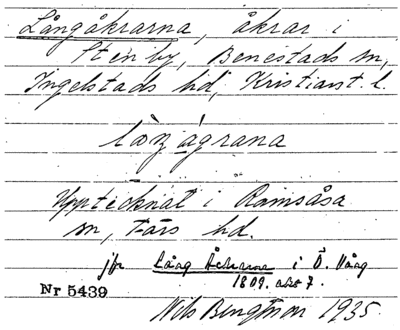 Långåkrarna, åkrar i
Stenby, Benestads sn,
Ingelstads hd, Kristianst. l.
Upptecknat i Ramsåsa
sn, Färs hd.
jfr Låag Åckrarna i Ö. Våag
1809. akt 7.
Nr 5439
Nils Bengtsson 1935.